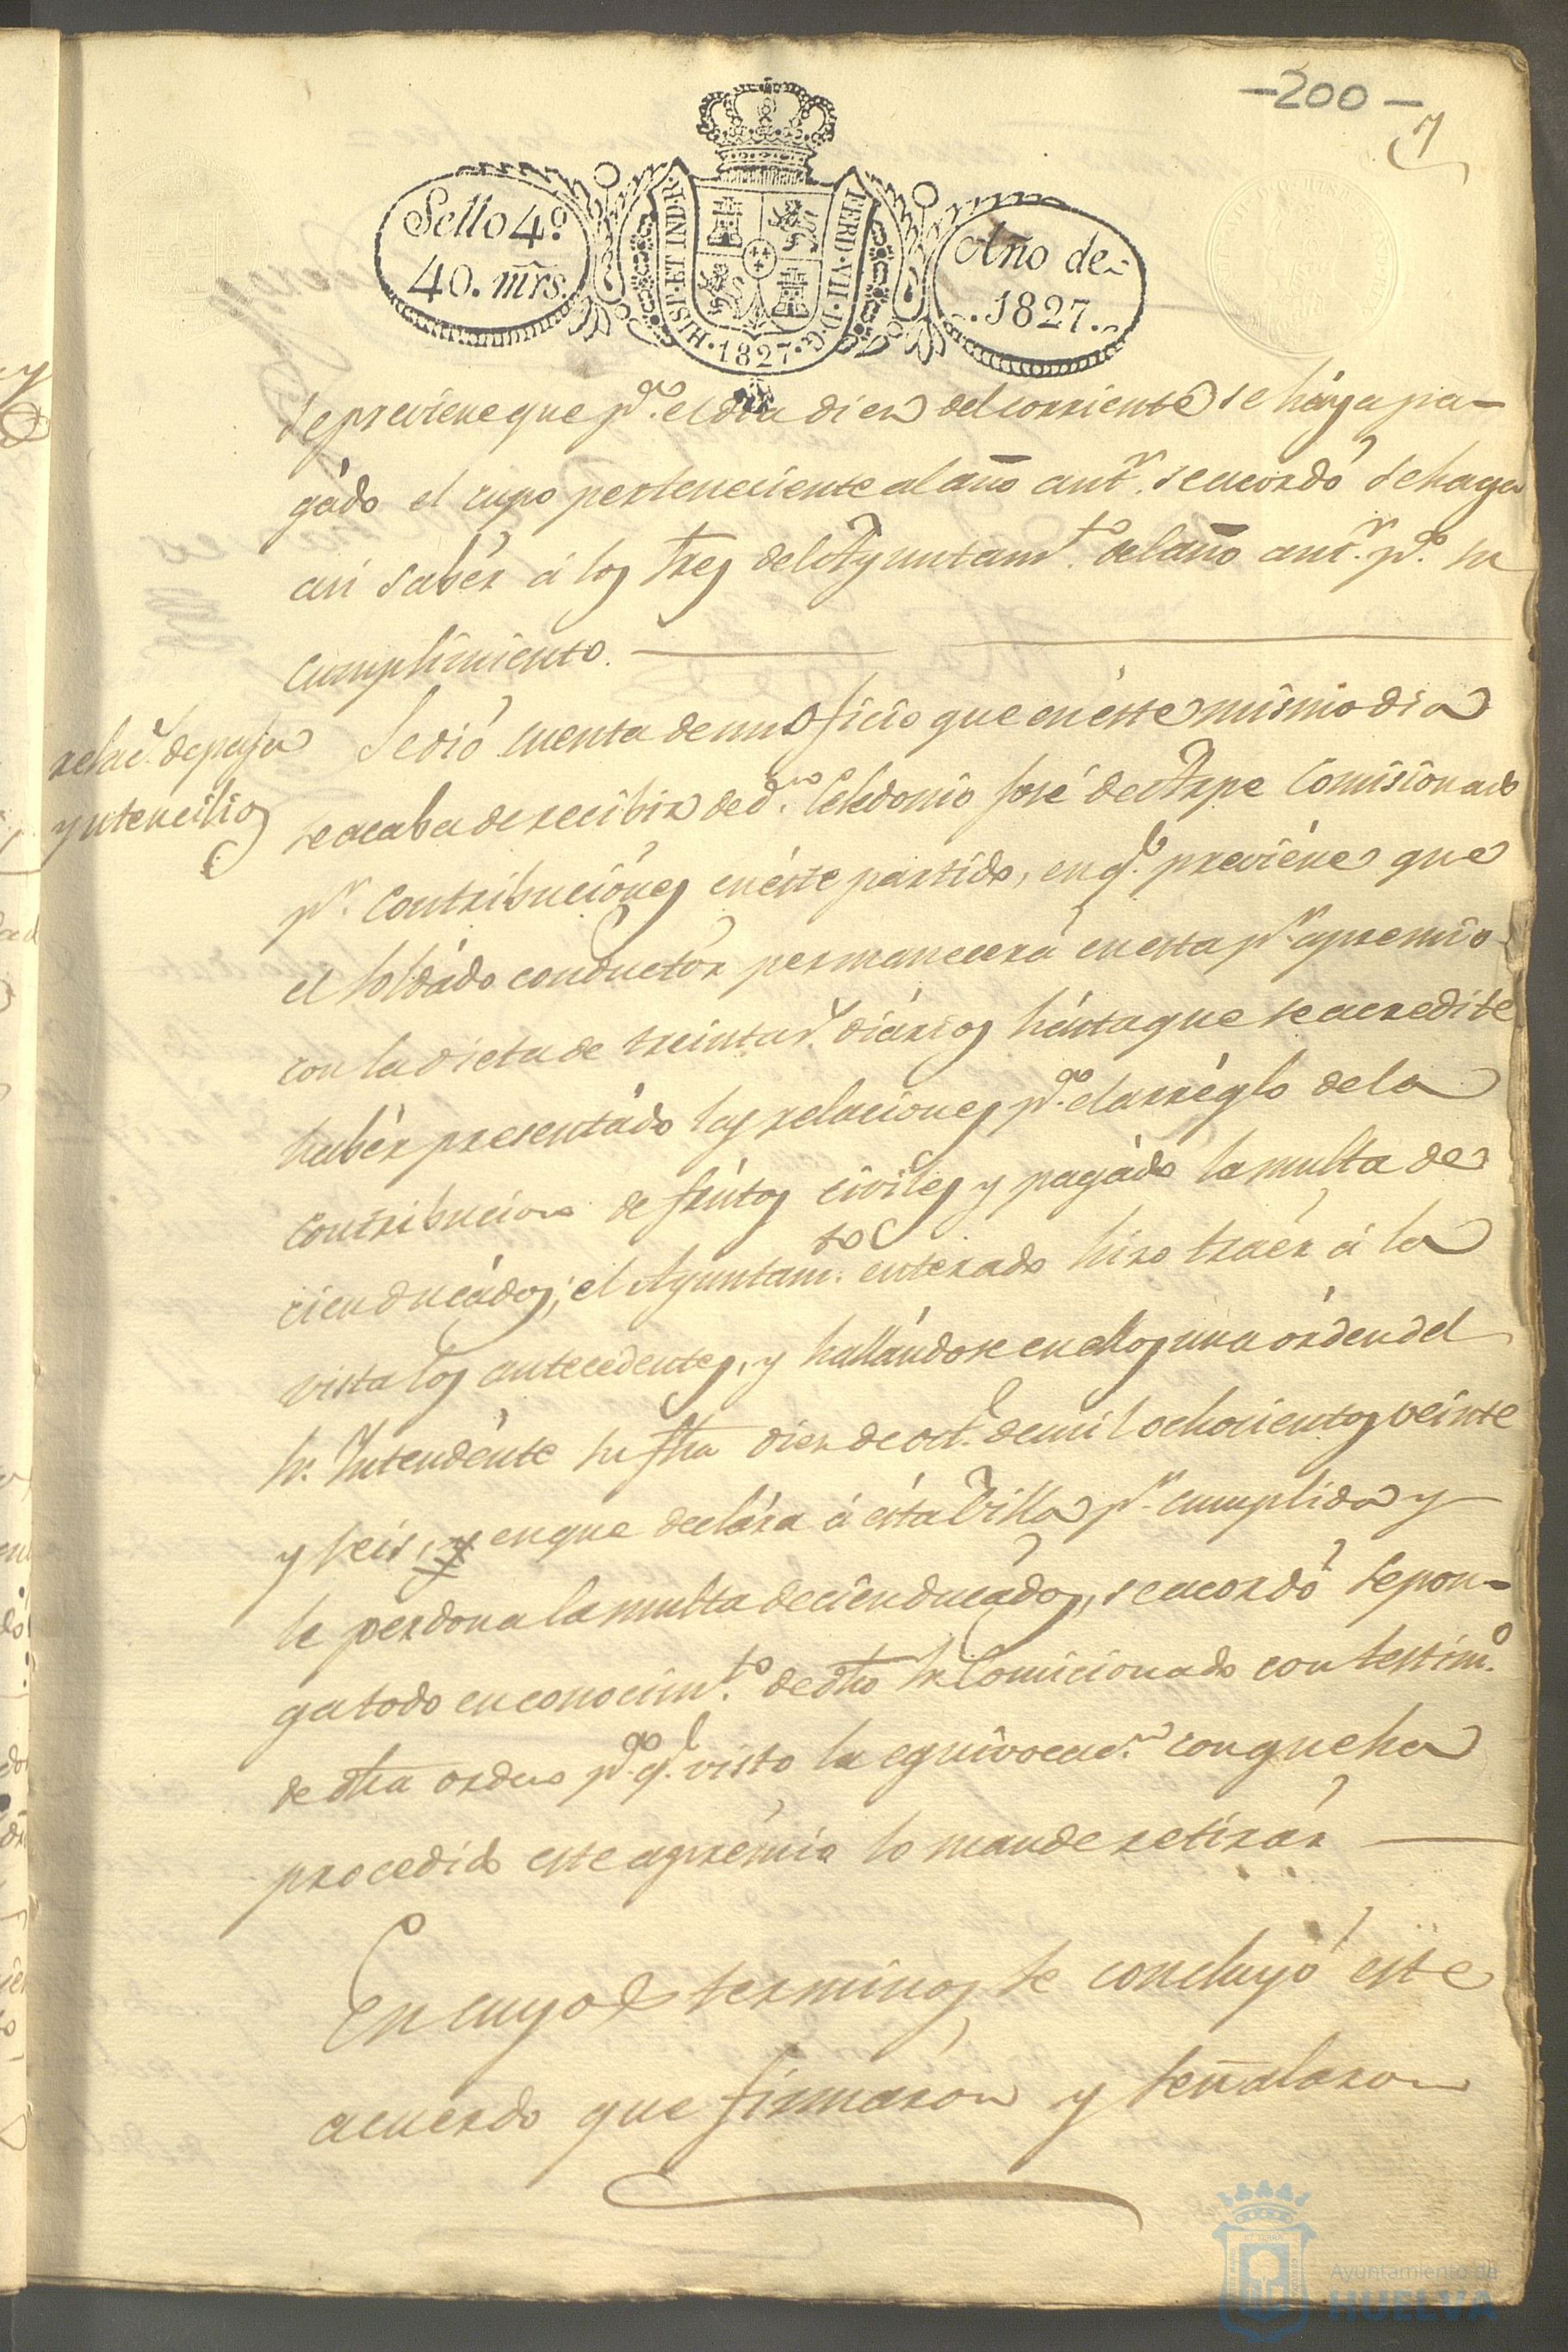 -200-
7
Sello 4º
40. mrs.
HISP. ET IND. R. 1827. FERD. VII. D. G.
Año de
1827.
se previene que pª. el dia diez del corriente se háya pa-
gádo el cupo perteneciente al año antr. se acordó se haga
asi sabér á los Sres del Ayuntamto. del año antr. pª. su
cumplimiento.
relacⁿ. de paja
y utencilios
Se dió cuenta de un Oficio que en éste mismo dia
se acaba de recibir de dⁿ. Celedonio José de Arpe Comisionado
pr. Contribuciónes en éste partido, en qe. previéne que
el soldádo conductór permanecerá en esta pr. apremio
con la dieta de treinta rs. diários hásta que se acredite
habér presentádo las relaciones pª. el arréglo de la
contribucion de frútos civiles y pagádo la multa de
cien ducádos; el Ayuntamto. enterado hizo traér á la
vista los antecedentes, y hallándose en ellos una órden del
Sr. Intendénte su fha diez de oct.e de mil ochocientos veinte
y seis, en que declára á ésta Villa pr. cumplida y
le perdona la multa de cien ducádos, se acordó se pon-
ga todo en conocimto. de dho Sr Comicionado con testimº.
de dha orden pª. qe. visto la equivocacⁿ. con que ha
procedido este aprémio lo mande retirár
En cuyos terminos se concluyó este
acuerdo que firmáron y señalaron
Ayuntamiento de
HUELVA